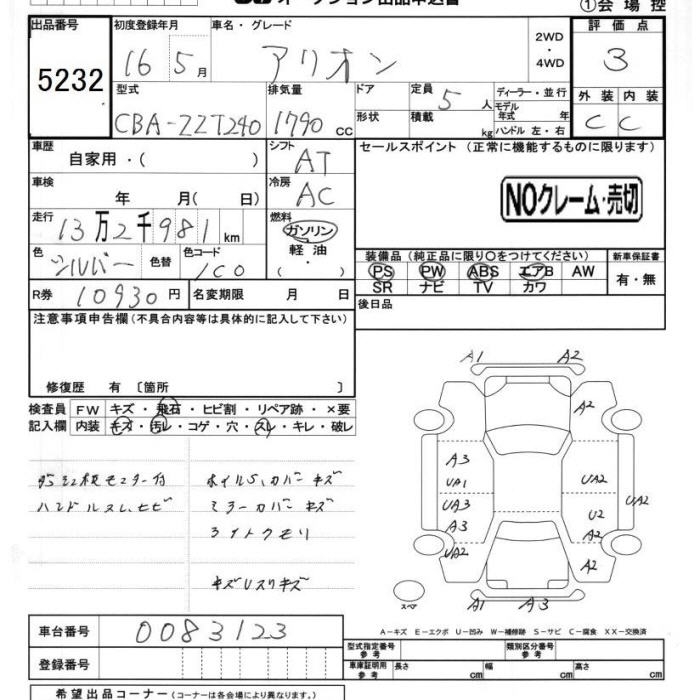 オークション出品申込書
①会場控
出品番号 初度登録年月 車名・グレード 2WD・4WD 評価点
5232 16 5月 アリオン 3
型式 排気量 ドア 定員 5人 ディーラー・並行 外装 内装
CBA-ZZT240 1790 cc 形状 積載 kg モデル年式 年 ハンドル 左・右 C C
車歴 シフト セールスポイント (正常に機能するものに限ります)
自家用・( ) AT
車検 冷房
年 月( 日) AC NOクレーム・売切
走行 燃料
13万2千981km ガソリン・軽油
色 色替 色コード 装備品 (純正品に限り○をつけてください) 新車保証書
シルバー 1C0 PS PW ABS エアB AW 有・無
SR ナビ TV カワ
R券 10930円 名変期限 月 日 後日品
注意事項申告欄 (不具合内容等は具体的に記入して下さい)
修復歴 有 〔箇所 〕
検査員 FW キズ・飛石・ヒビ割・リペア跡・×要
記入欄 内装 キズ・汚レ・コゲ・穴・スレ・キレ・破レ
ホイルS、カバーキズ
ハンドルスレ、ヒビ ミラーカバーキズ
ライトクモリ
キズUスリキズ
A1 A2
A2
A3
UA1 UA2
UA3 UA2
U2
A3 A2
UA2 A2
スペア A1 A3
A-キズ E-エクボ U-凹み W-補修跡 S-サビ C-腐食 XX-交換済
車台番号 0083123
型式指定番号 参考 類別区分番号 参考
登録番号 車庫証明用 参考 長さ cm 幅 cm 高さ cm
希望出品コーナー (コーナーは各会場により異なります。)